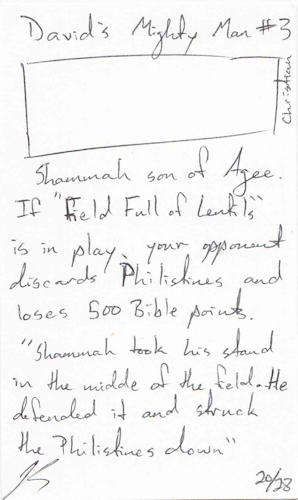 David's Mighty Man #3
Christian
Shammah son of Agee.
If "Field Full of Lentils"
is in play, your opponent
discards Philistines and
loses 500 Bible points.
"Shammah took his stand
in the middle of the field. He
defended it and struck
the Philistines down"
20/28